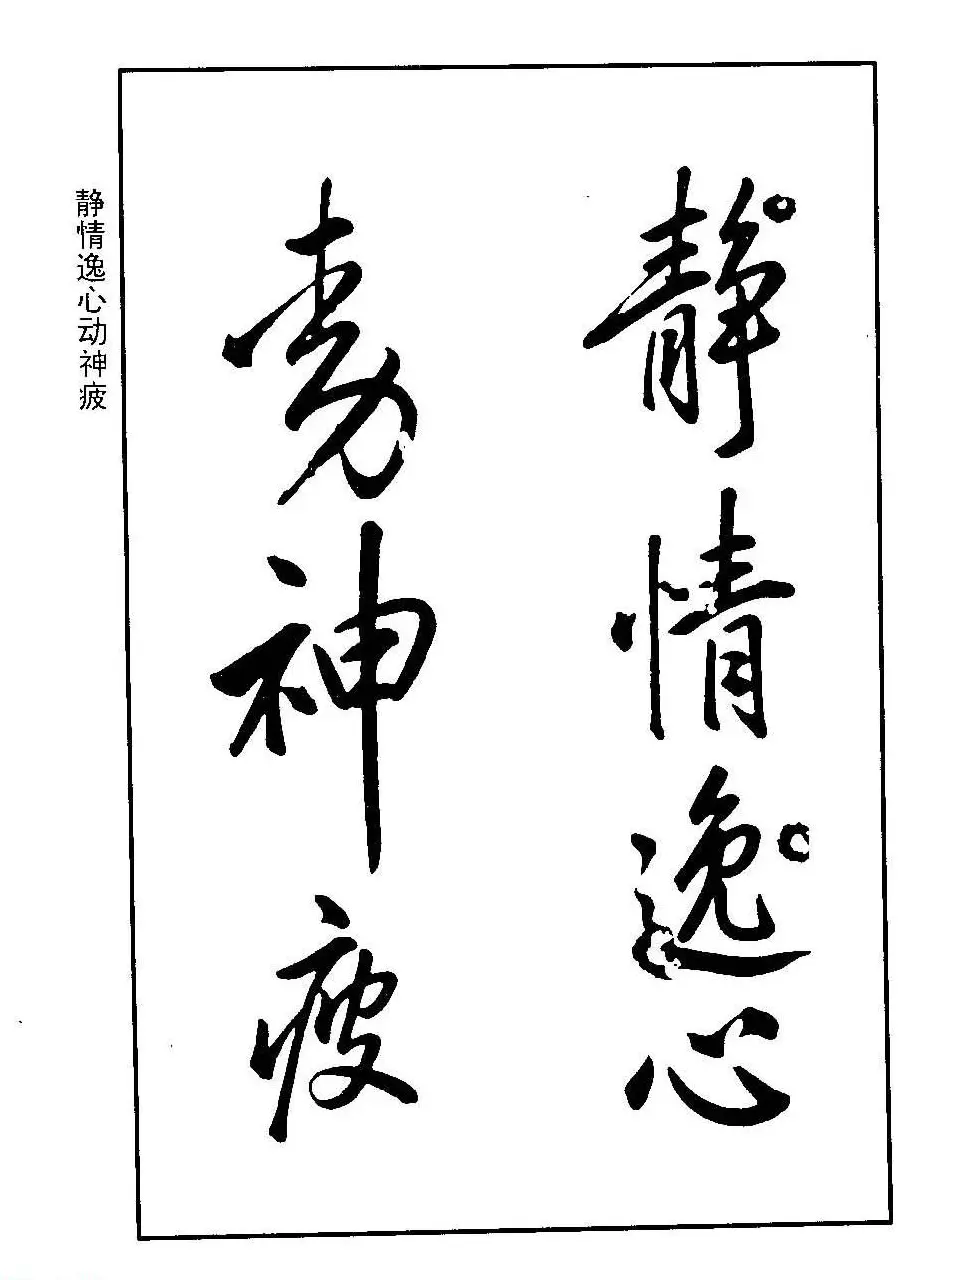 静情逸心
動神疲
静情逸心动神疲